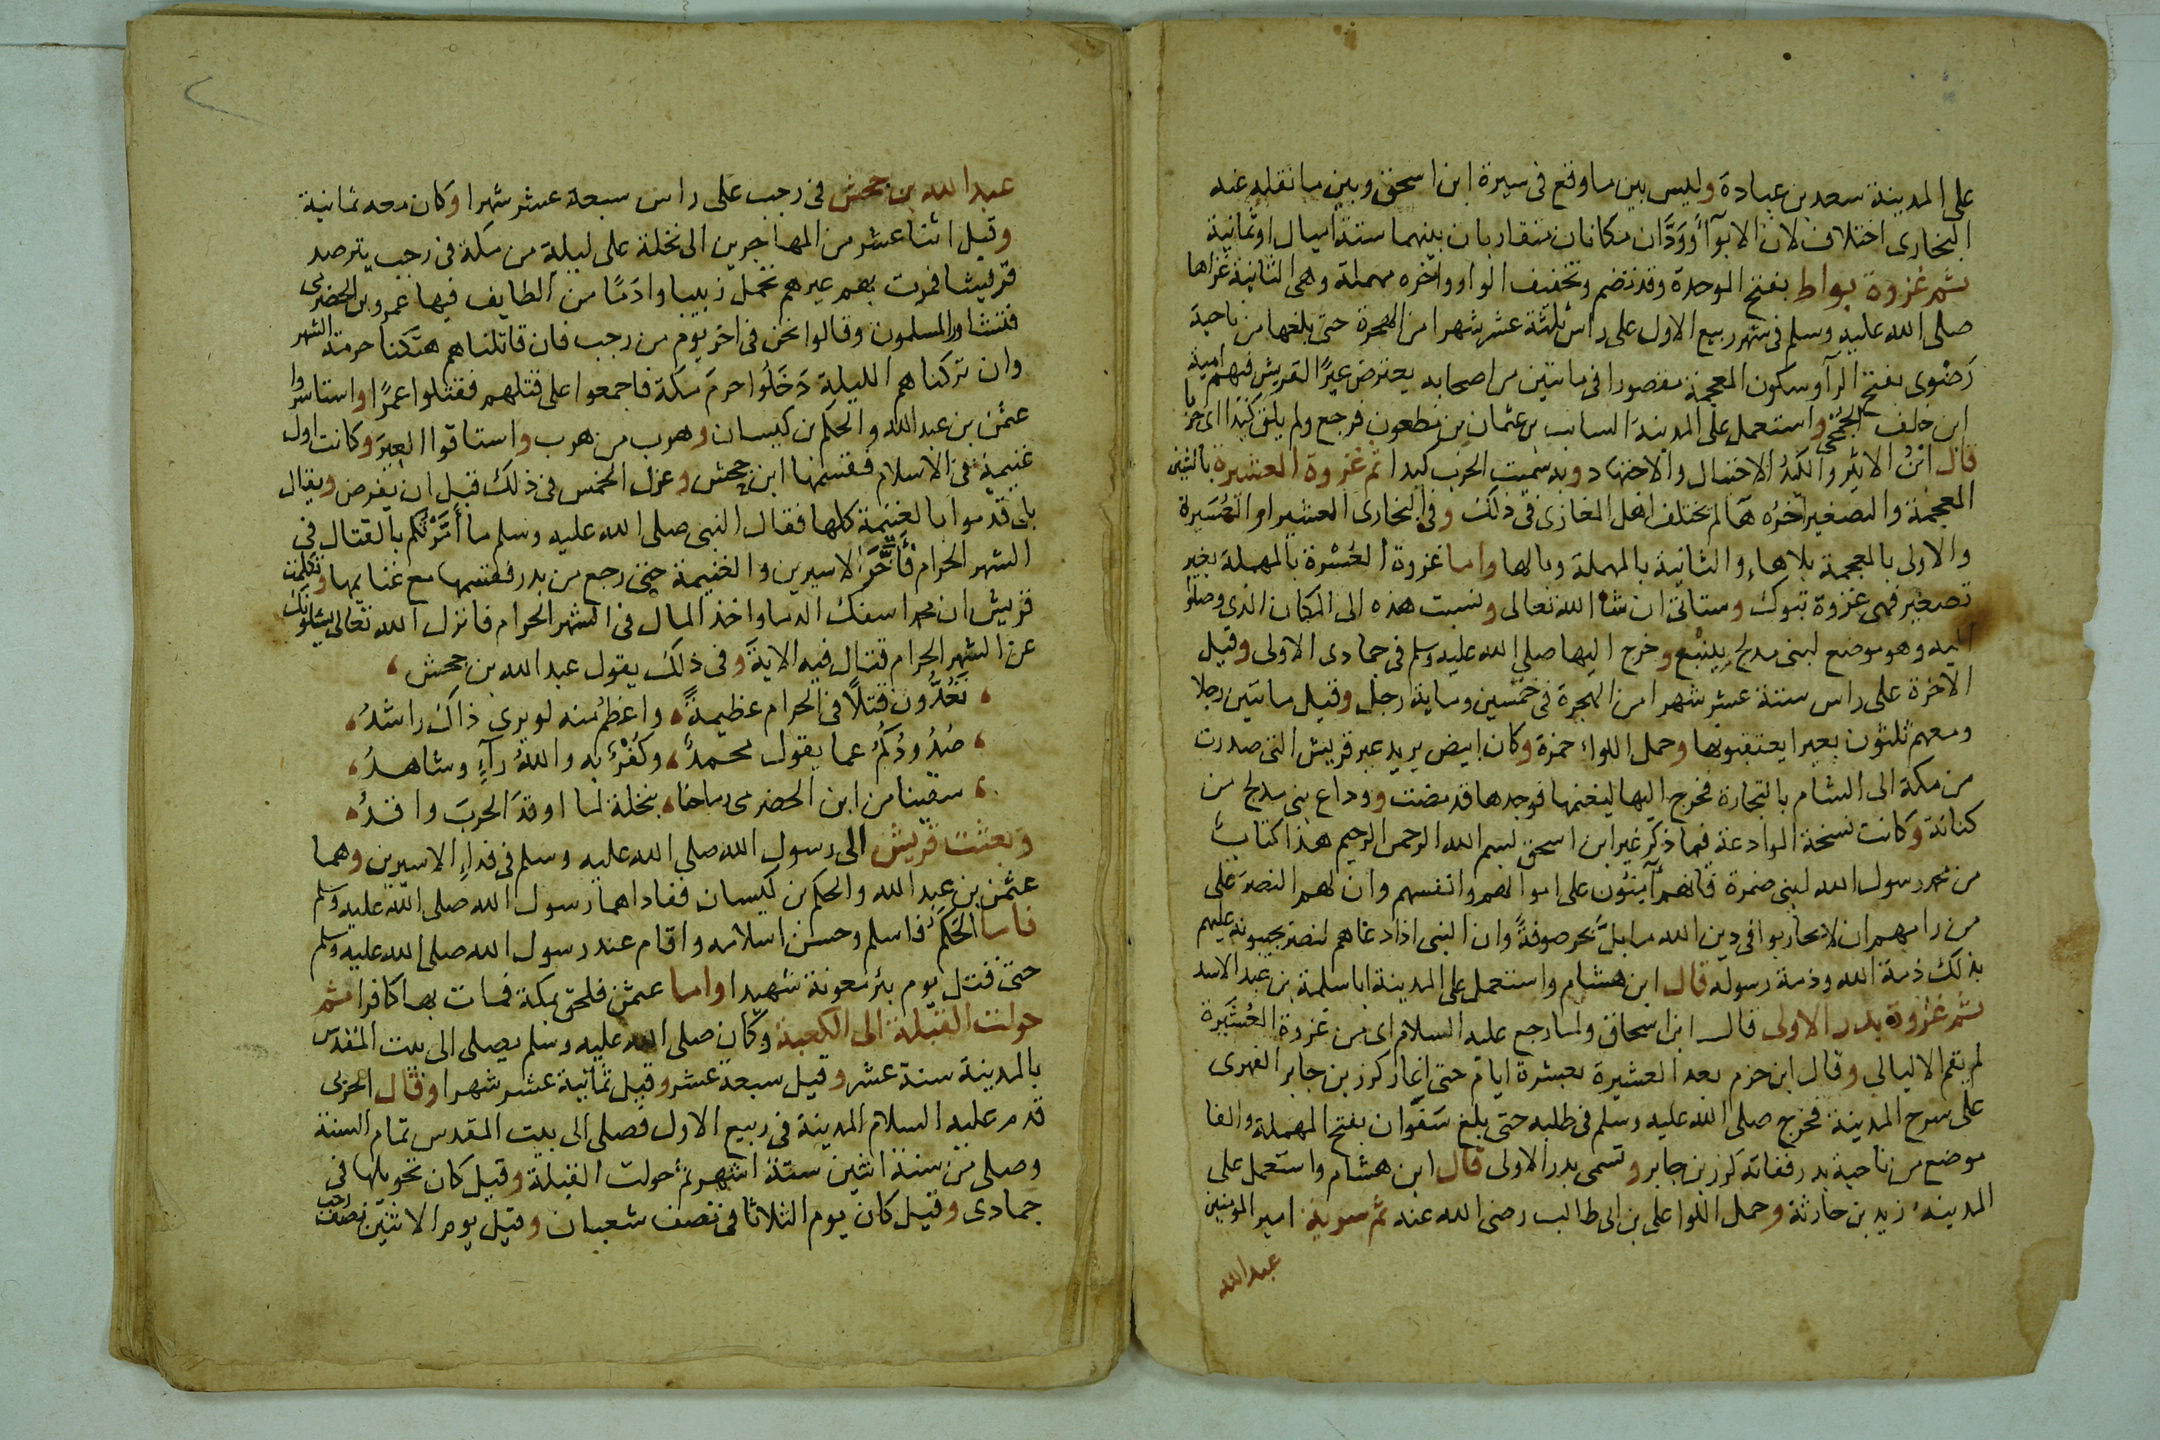 على المدينة سعد بن عبادة وليس بين ما وقع في سيرة ابن اسحق وبين ما نقله عنه
البخارى اختلاف لان الابوآ وَوَدَّان مكانان متقاربان بينهما ستة اميال او ثمانية
ثم غزوة بواط بفتح الموحدة وقد تضم وتخفيف الواو واخره مهملة وهى الثانية غزاها
صلى الله عليه وسلم فى شهر ربيع الاول على راس ثلثة عشر شهرا من الهجرة حتى بلغها من ناحية
رَضْوى بفتح الرآ وسكون المعجمة مقصورا فى مائتين من اصحابه يعترض عيرًا لقريش فيهم امية
ابن خلف الجُمَحى واستعمل على المدينة السائب بن عثمان بن مظعون فرجع ولم يلق كيدا اى حربا
قال ابْنُ الاثير والكيدُ الاحتيال والاجتهاد وبه سميت الحرب كيدا ثم غزوة العشيرة بالشين
المعجمة والتصغير آخرُه هآ لم يختلف اهل المغازى فى ذلك وفى البخارى العشير او العُسَيرة
والاولى بالمعجمة بلا هاء والثانية بالمهملة وبالها واما غزوة العُسْرة بالمهملة بغير
تصغير فهى غزوة تبوك وستاتى ان شآ الله تعالى ونسبت هذه الى المكان الذى وصلوا
اليه وهو موضع لبنى مدلج بينبُع وخرج اليها صلى الله عليه وسلم فى جمادى الاولى وقيل
الاخرة على راس ستة عشر شهرا من الهجرة فى خمسين وماية رجل وقيل مائتين رجلا
ومعهم ثلثون بعيرا يعتقبونها وحمل اللواء حمزة وكان ابيض يريد عير قريش التى صدرت
من مكة الى الشام بالتجارة فخرج اليها ليغنمها فوجدها قد مضت ووداع بنى مدلج من
كنانة وكانت نسخة الموادعة فيما ذكر غير ابن اسحق بسم الله الرحمن الرحيم هذا كتابٌ
من محمد رسول الله لبنى ضمرة فانهم آمِنُون على اموالهم وانفسهم وان لهم النصرَ على
من رامهم ان لا يحاربوا فى دين الله ما بلَّ بحر صوفةً وان النبى اذا دعاهم لنصر يجيبونه عليهم
بذلك ذمة الله وذمة رسوله قال ابن هشام واستعمل على المدينة ابا سلمة بن عبد الاسد
ثم غزوة بدر الاولى قال ابن اسحاق ولما رجع عليه السلام اى من غزوة العُشَيرة
لم يقم الا ليالى وقال ابن حزم بعد العشيرة بعشرة ايام حتى اغار كرز بن جابر الفهرى
على سرح المدينة فخرج صلى الله عليه وسلم فى طلبه حتى بلغ سَفَوان بفتح المهملة والفا
موضع من ناحية بدر ففاته كرز بن جابر وتسمى بدر الاولى قال ابن هشام واستعمل على
المدينة زيد بن حارثة وحمل اللوا على بن ابى طالب رضى الله عنه ثم سرية امير المومنين
عبد الله
عبد الله بن جحش فى رجب على راس سبعة عشر شهرا وكان معه ثمانية
وقيل اثنا عشر من المهاجرين الى نخلة على ليلة من مكة فى رجب يترصد
قريشا فمرت بهم عيرهم تحمل زبيبا وادَمًا من الطايف فيها عمرو بن الحضرمى
فتشاور المسلمون وقالوا نحن فى اخر يوم من رجب فان قاتلناهم هتكنا حرمة الشهر
وان تركناهم الليلة دَخَلُوا حرمَ مكة فاجمعوا على قتلهم فقتلوا عمرًا واستاسروا
عثمن بن عبد الله والحكم بن كيسان وهرب من هرب واستاقوا العيرَ وكانت اول
غنيمة فى الاسلام فقسمها ابن جحش وعزل الخمس فى ذلك قبل ان يفرض ويقال
بل قدموا بالغنيمة كلها فقال النبى صلى الله عليه وسلم ما أمَرْتُكم بالقتال فى
الشهر الحرام فَأَخَّرَ الاسيرين والغنيمة حتى رجع من بدر فقسمها مع غنايمها وتكلمت
قريش ان محمدا سفك الدما واخذ المال فى الشهر الحرام فانزل الله تعالى يسئلونك
عن الشهر الحرام قتال فيه الاية وفى ذلك يقول عبد الله بن جحش ،
، تَعُدُّون قتلاً فى الحرام عظيمةً ، واعظمُ منه لو يرى ذاك راشدُ ،
، صُدُودُكُم عما يقول محمدٌ ، وكُفْرٌ به واللهُ رآءٍ وشاهدُ ،
، سقينا من ابن الحضرمى رماحنا ، بنخلة لما اوقدَ الحربَ واقدُ ،
وبعثت قريش الى رسول الله صلى الله عليه وسلم فى فداءِ الاسيرين وهما
عثمن بن عبد الله والحكم بن كيسان ففاداهما رسول الله صلى الله عليه وسلم
فاما الحَكَم فاسلم وحسن اسلامه واقام عند رسول الله صلى الله عليه وسلم
حتى قتل يوم بئر معونة شهيدا واما عثمن فلحق بمكة فمات بها كافرا ثم
حولت القبلة الى الكعبة وكان صلى الله عليه وسلم يصلى الى بيت المقدس
بالمدينة ستة عشر وقيل سبعة عشر وقيل ثمانية عشر شهرا وقال الحربى
قدم عليه السلام المدينة فى ربيع الاول فصلى الى بيت المقدس تمام السنة
وصلى من سنة اثنين ستة اشهر ثم حولت القبلة وقيل كان تحويلها فى
جمادى وقيل كان يوم الثلاثا فى نصف شعبان وقيل يوم الاثنين نصف رجب